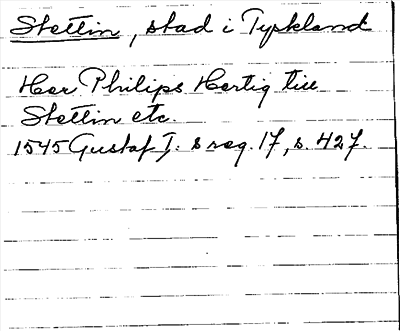 Stettin, stad i Tyskland
Her Philips Hertig till
Stettin etc.
1545 Gustaf I. s reg. 17, s. 427.